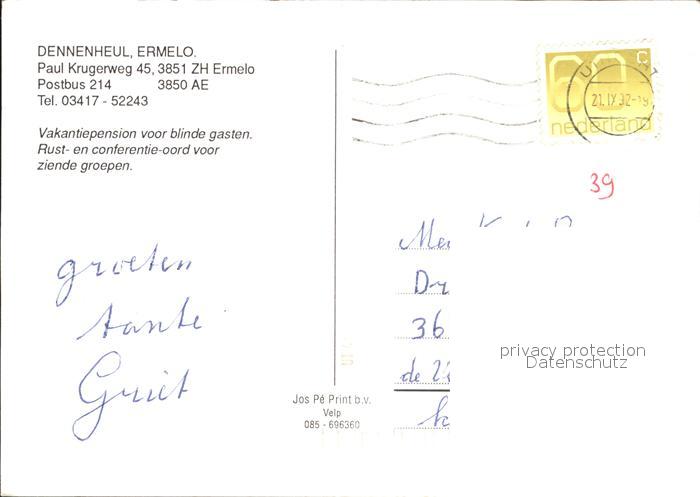 DENNENHEUL, ERMELO.
Paul Krugerweg 45, 3851 ZH Ermelo
Postbus 214 3850 AE
Tel. 03417 - 52243
Vakantiepension voor blinde gasten.
Rust- en conferentie-oord voor
ziende groepen.
groeten
tante
Griet
Jos Pé Print b.v.
Velp
085 - 696360
60 c
21.IX.92-19
nederland
39
Dr
36
de
privacy protection
Datenschutz